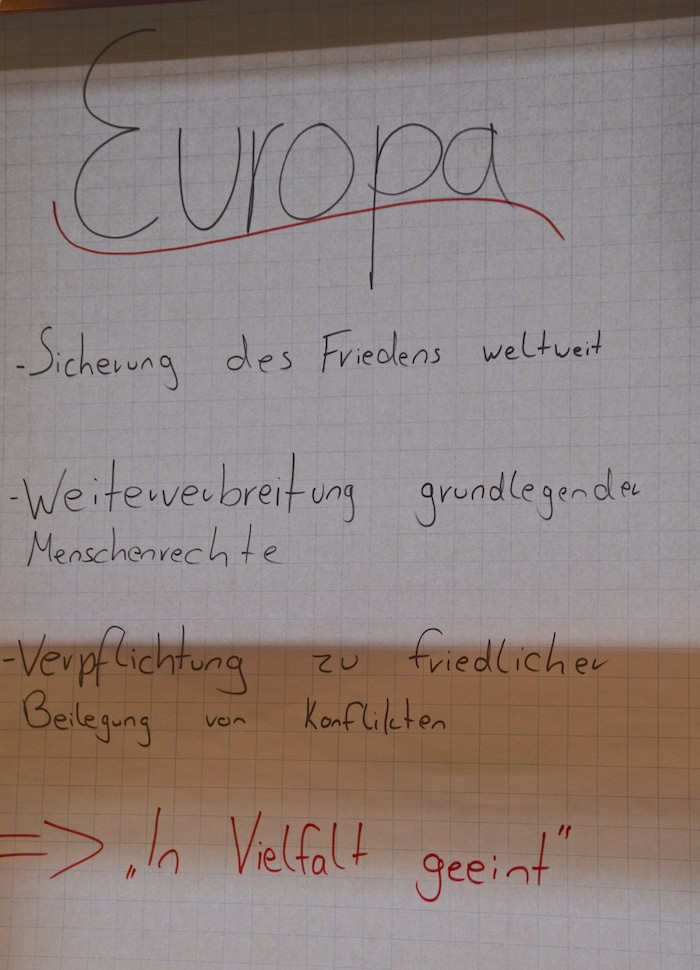 Europa
-Sicherung des Friedens weltweit
-Weiterverbreitung grundlegender
Menschenrechte
-Verpflichtung zu friedlicher
Beilegung von Konflikten
=> „In Vielfalt geeint"